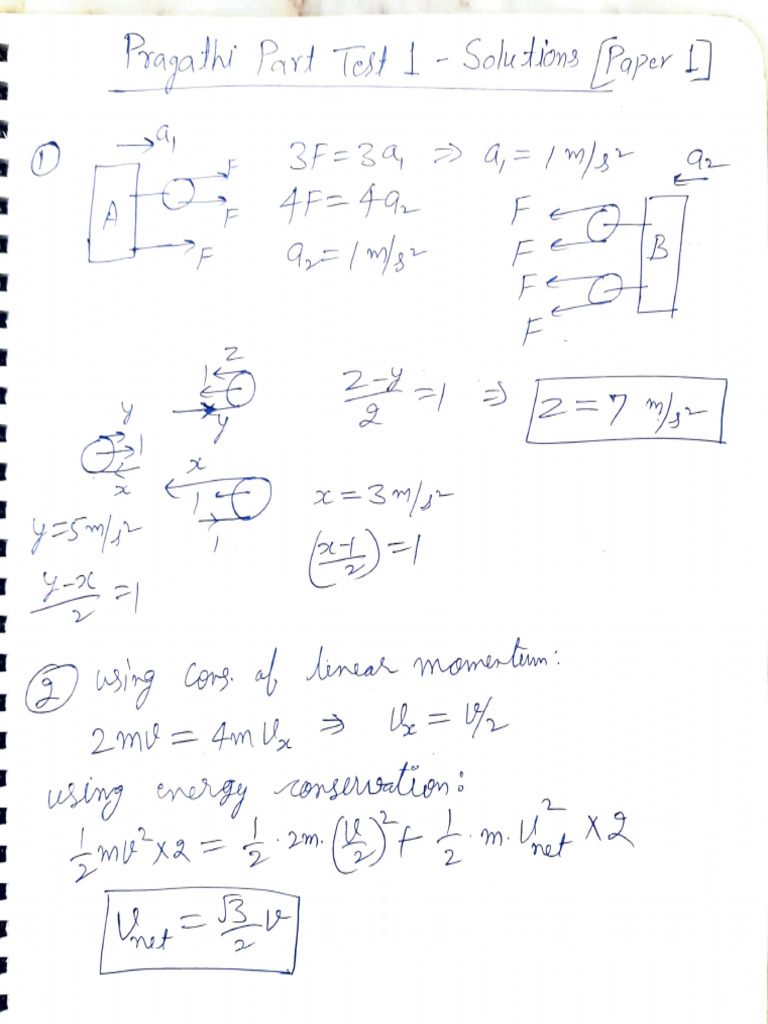 Pragathi Part Test 1 - Solutions [Paper 1]
① a₁ A F F F
3F = 3a₁ ⇒ a₁ = 1 m/s²
4F = 4a₂
a₂ = 1 m/s²
a₂ F F F F B
z 1 y
(z-y)/2 = 1 ⇒ z = 7 m/s²
y 1 x
x 1 1
x = 3 m/s²
y = 5 m/s²
(x-1/2) = 1
(y-x)/2 = 1
② using cons. of linear momentum:
2mv = 4m vₓ ⇒ vₓ = v/2
using energy conservation:
1/2 mv² × 2 = 1/2 · 2m · (v/2)² + 1/2 · m · v²net × 2
vnet = √3/2 v